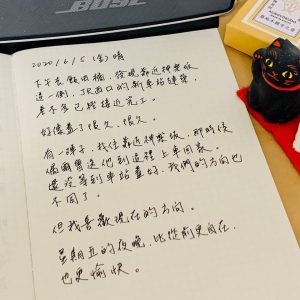 BOSE
2020／6／5（金）晴
下午去飯田橋，發現靠近神樂坂
這一側，JR西口的新車站建築，
差不多已經接近完工。
好像蓋了很久、很久。
有一陣子，我住靠近神樂坂，那時候
偶爾會送他到這裡上車回家。
還沒等到車站蓋好，我們的方向也
不同了。
但我喜歡現在的方向。
星期五的夜晚，比從前更自在，
也更愉快。